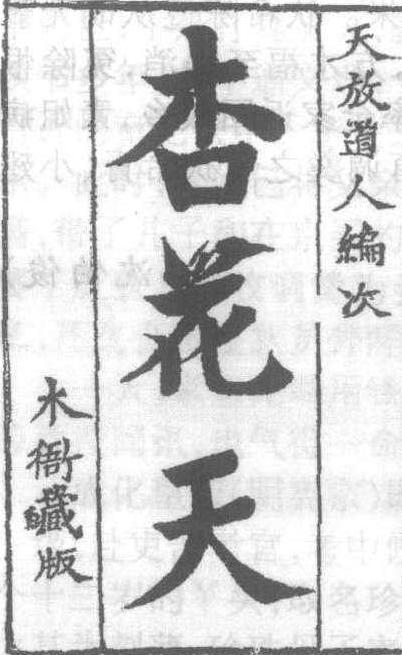 天放道人編次
杏花天
木衙藏版